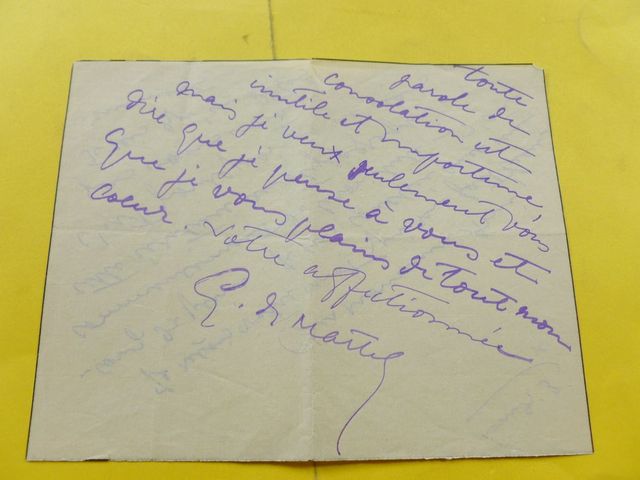 toute
parole de
consolation est
inutile et importune
mais je veux seulement vous
dire que je pense à vous et
que je vous plains de tout mon
coeur. Votre affectionnée
G. de Martel